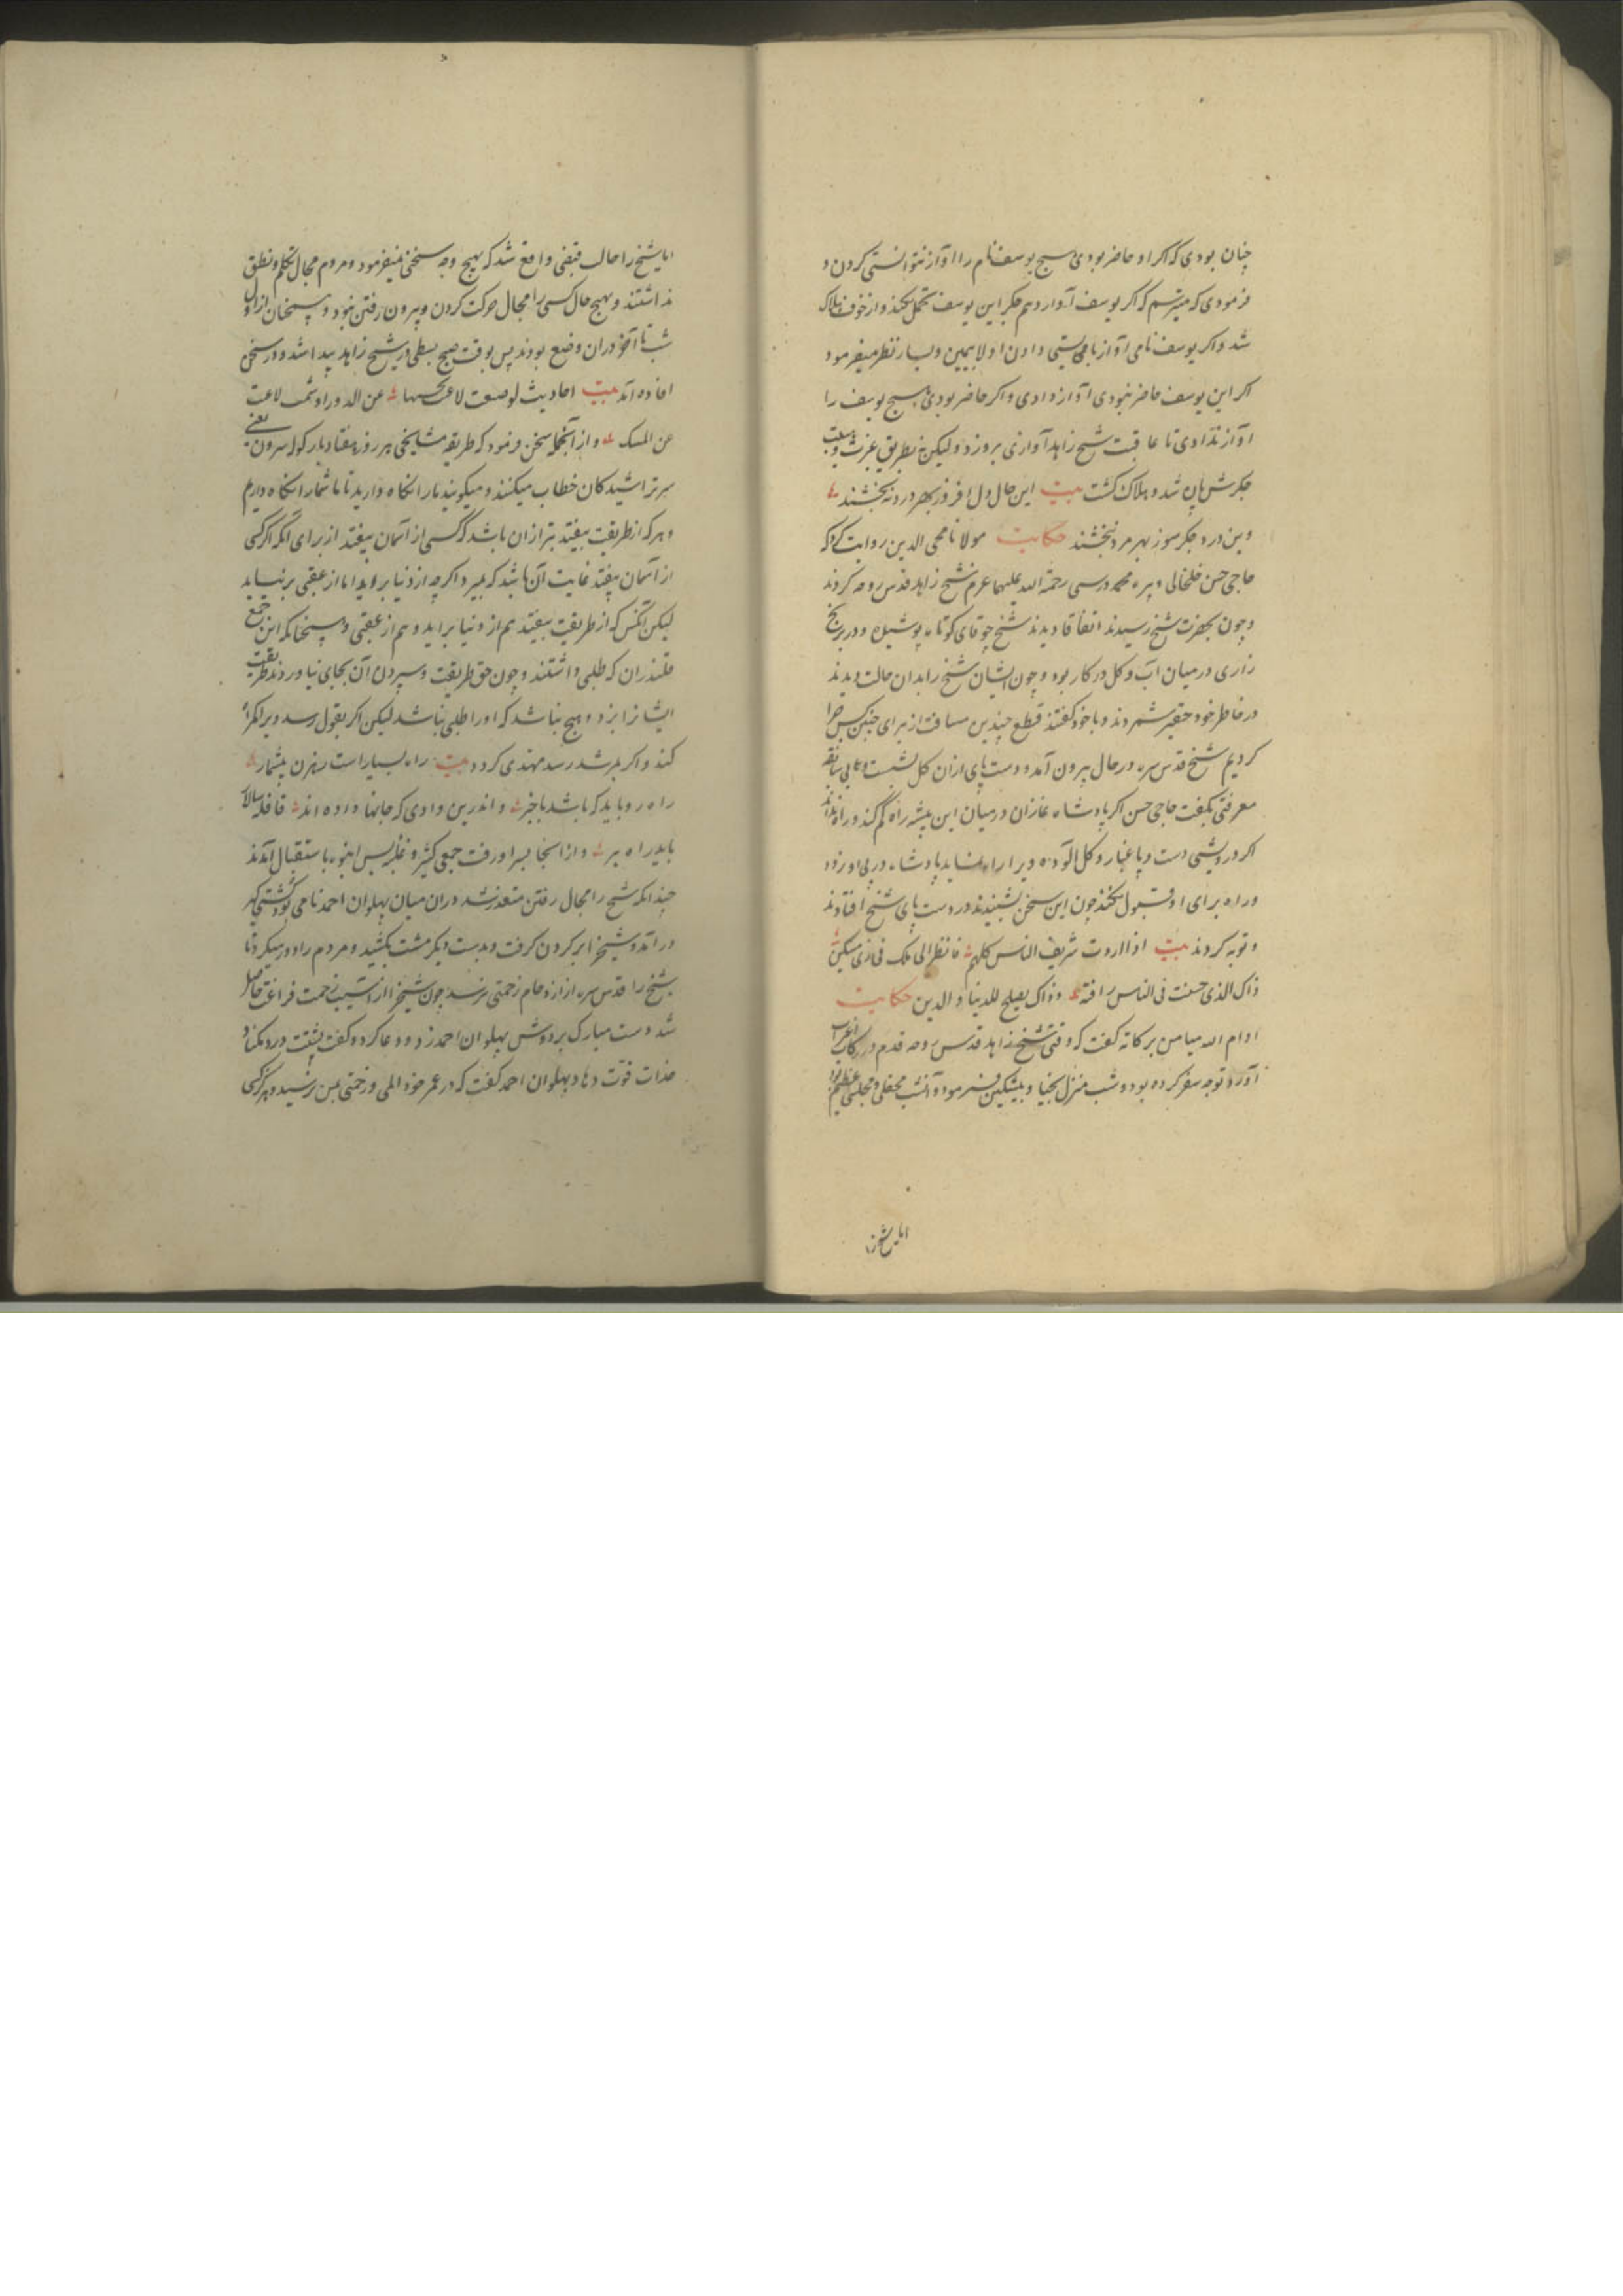 چنان بودی که اکر او حاضر بودی هیچ یوسف نام را آواز نتوانستی کردن و
فرمودی که میترسم که اکر یوسف آواز دهم جکر این یوسف تحمل نکند و از خوف هلاک
شد و اکر یوسف نامی آواز بایستی دادن اولا بیمین و یسار نظر میفرمود
اکر این یوسف حاضر نبودی آواز دادی و اکر حاضر بودی هیچ یوسف را
آواز ندادی تا عاقبت شیخ زاهد آوازی برو زد ولیکن نه بطریق عزت
جکرش پاره شد و هلاک کشت بیت این حال دل افروز بهر درد نبخشند
وین درد جکرسوز بهر مرد نبخشند حکایت مولانا محی الدین روایت کرد که
حاجی حسن خلخالی و پیره محمد رحمة الله علیهما عزم شیخ زاهد قدس روحه کردند
و چون بحضرت شیخ رسیدند اتفاقا دیدند شیخ چوقای کوتاه پوشیده و در برنج
زاری در میان آب و کل در کار بود و چون ایشان شیخ را بدان حالت دیدند
در خاطر خود حقیر شمردند و با خود کفتند قطع چندین مسافت از برای چنین کس چرا
کردیم شیخ قدس سره در حال بیرون آمد و دست پای ازان کل بشست و بی سابقه
معرفتی بکفت حاجی حسن اکر پادشاه غازان در میان این بیشه راه کم کند و راه نداند
اکر درویشی دست و پا غبار و کل آلوده ویرا راه نماید پادشاه در پی او رود
و راه برای او قبول نکند چون این سخن بشنیدند در دست پای شیخ افتادند
و توبه کردند بیت اذا اردت شریف الناس کلهم فانظر الی ملک فی زی مسکین
ذاک الذی حسنت فی الناس رافته وذاک یصلح للدنیا و الدین حکایت
ادام الله میامن برکاته کفت که وقتی شیخ زاهد قدس روحه قدم در رکاب
آورد توجه سفر کرده بود و شب منزل بمیشکین فرمود و آنشب محفلی و مجلسی عظیم بود
اما شیخ را
اما شیخ را حالت قبضی واقع شد که بهیچ وجه سخن نمیفرمود و مردم مجال تکلم و نطق
نداشتند و بهیچ حال کسی را مجال حرکت کردن و بیرون رفتن نبود و همچنان از اول
شب تا آخر دران وضع بودند پس بوقت صبح بسطی در شیخ زاهد پیدا شد و در سخن
افاده آمد بیت احادیث لو صیغت عن الدر او شمت لاغنت
عن المسک و از آنجمله سخن فرمود که طریقه مشایخ هر روز هفتاد بار یعنی
سرتراشیدکان خطاب میکنند و میکویند ما را نکاه دارید تا ما شما را نکاه داریم
و هر که از طریقت بیفتد بتر ازان باشد که کسی از آسمان بیفتد از برای آنکه اکر کسی
از آسمان بیفتد غایت آن باشد که بمیرد اکرچه از دنیا براید اما از عقبی برنیاید
لیکن آنکس که از طریقت بیفتد هم از دنیا براید و هم از عقبی و همچنانکه این جمع
قلندران که طلبی داشتند و چون حق طریقت و سپردن آن بجای نیاوردند طریقت
ایشانرا بزد و هیچ نباشد که او را طلبی نباشد لیکن اکر بغول رسد ویرا کمراه
کند و اکر بمرشد رسد مهتدی کردد بیت راه بسیار است رهزن بیشمار
راه رو باید که باشد باخبر و اندرین وادی که جانها داده اند قافله سالار
باید راه بر و از آنجا بسراو رفت جمعی کثیر و غلبه بس انبوه باستقبال آمدند
چندانکه شیخ را مجال رفتن متعذر شد دران میان پهلوان احمد نامی بود کشتی کیر
درآمد و شیخ را بر کردن کرفت و بدست دیکر مشت بکشید و مردم را دور میکرد تا
شیخ را قدس سره از ازدحام زحمتی نرسد چون شیخ را از آسیب زحمت فراغتی حاصل
شد دست مبارک بر دوش پهلوان احمد زد و دعا کرد و کفت پشتت درد مکناد
خدات قوت دهاد پهلوان احمد کفت که در عمر خود المی و زحمتی بمن نرسید و هرکز کسی